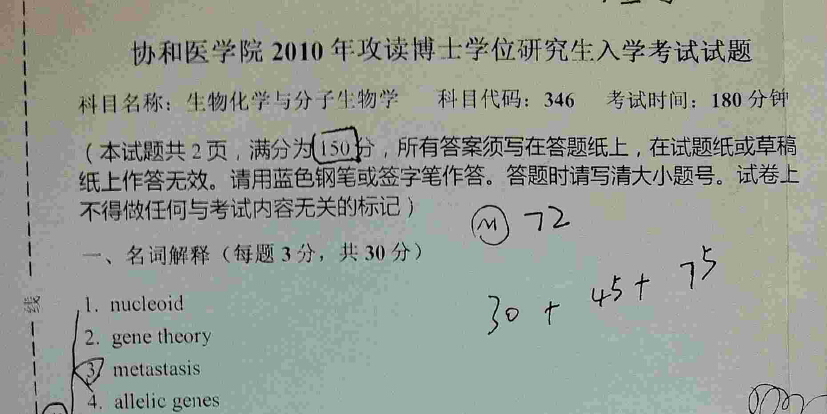 协和医学院 2010 年攻读博士学位研究生入学考试试题
科目名称：生物化学与分子生物学 科目代码：346 考试时间：180 分钟
（本试题共 2 页，满分为150分，所有答案须写在答题纸上，在试题纸或草稿
纸上作答无效。请用蓝色钢笔或签字笔作答。答题时请写清大小题号。试卷上
不得做任何与考试内容无关的标记）
M 72
一、名词解释（每题 3 分，共 30 分）
30 + 45 + 75
1. nucleoid
2. gene theory
3. metastasis
4. allelic genes
线